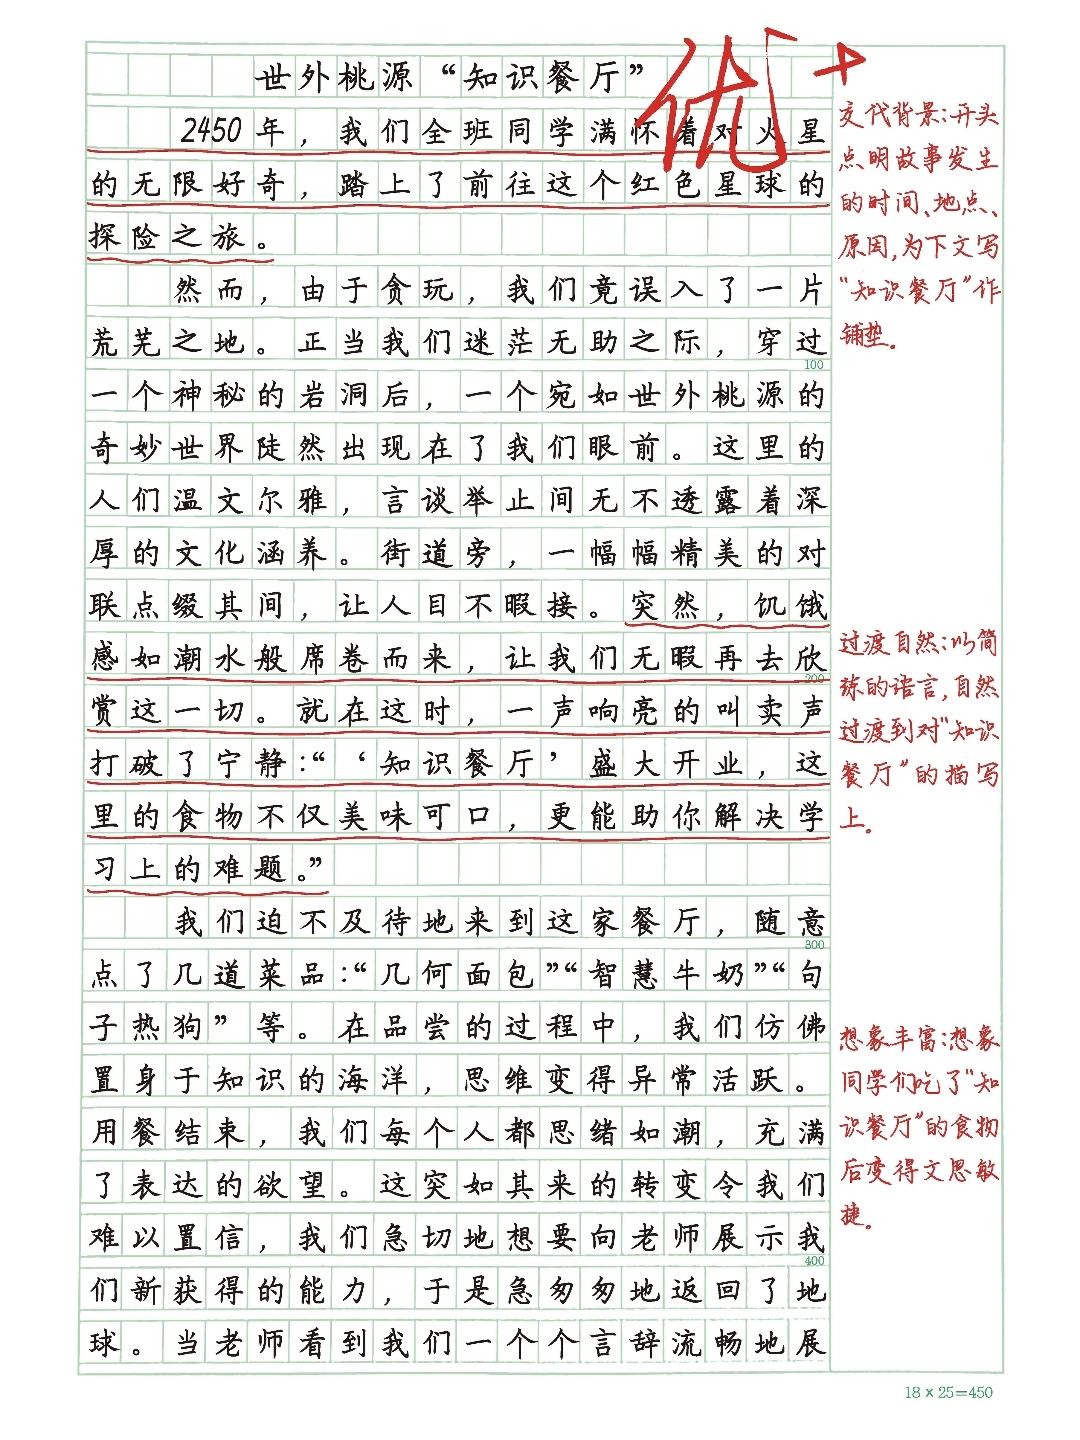 世外桃源“知识餐厅”
优+
2450年，我们全班同学满怀着对火星
的无限好奇，踏上了前往这个红色星球的
探险之旅。
然而，由于贪玩，我们竟误入了一片
荒芜之地。正当我们迷茫无助之际，穿过
100
一个神秘的岩洞后，一个宛如世外桃源的
奇妙世界陡然出现在了我们眼前。这里的
人们温文尔雅，言谈举止间无不透露着深
厚的文化涵养。街道旁，一幅幅精美的对
联点缀其间，让人目不暇接。突然，饥饿
感如潮水般席卷而来，让我们无暇再去欣
200
赏这一切。就在这时，一声响亮的叫卖声
打破了宁静：“‘知识餐厅’盛大开业，这
里的食物不仅美味可口，更能助你解决学
习上的难题。”
我们迫不及待地来到这家餐厅，随意
300
点了几道菜品：“几何面包”“智慧牛奶”“句
子热狗”等。在品尝的过程中，我们仿佛
置身于知识的海洋，思维变得异常活跃。
用餐结束，我们每个人都思绪如潮，充满
了表达的欲望。这突如其来的转变令我们
难以置信，我们急切地想要向老师展示我
400
们新获得的能力，于是急匆匆地返回了地
球。当老师看到我们一个个言辞流畅地展
交代背景：开头
点明故事发生
的时间、地点、
原因，为下文写
“知识餐厅”作
铺垫。
过渡自然：以简
练的语言，自然
过渡到对“知识
餐厅”的描写
上。
想象丰富：想象
同学们吃了“知
识餐厅”的食物
后变得文思敏
捷。
18×25=450